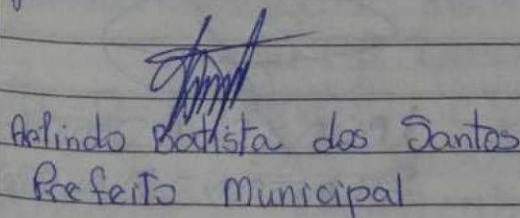 Arlindo Batista dos Santos
Prefeito Municipal